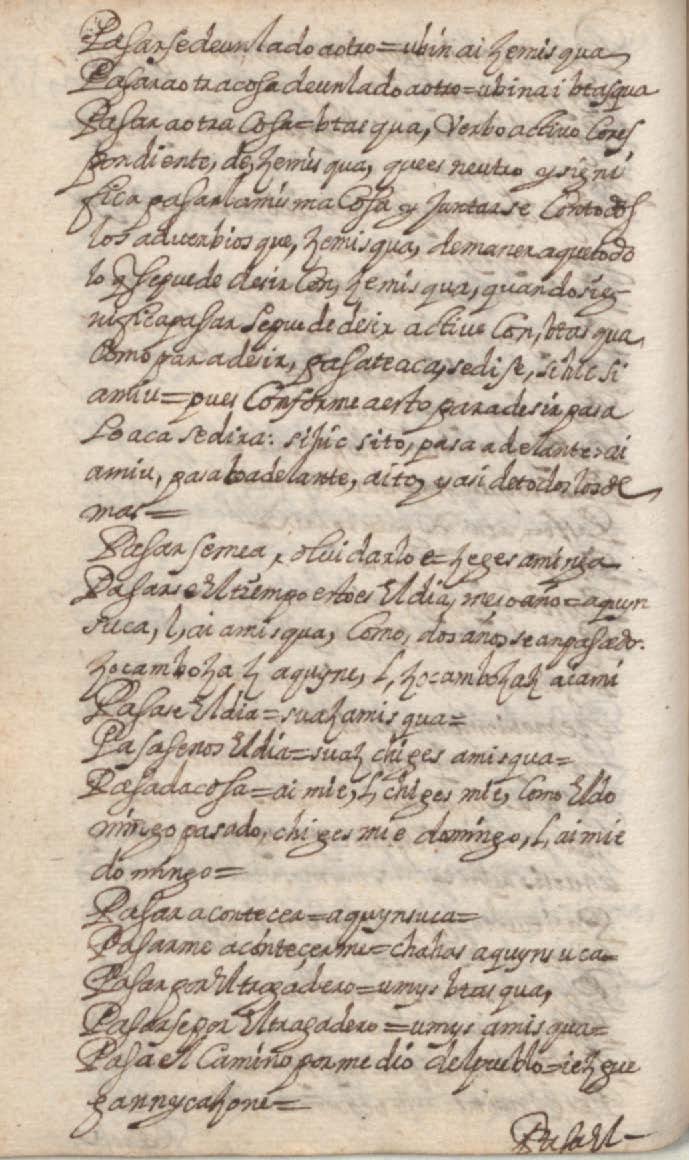 Pasarse de un lado a otro = ubin ai zemisqua
Pasar a otra cosa de un lado a otro = ubin ai btasqua
Pasar a otra Cosa = btasqua, Verbo activo Cores
pondiente, de, zemisqua, que es neutro y signi
fica pasar la misma Cosa y Juntarse Con todos
los adverbios que, zemisqua, de manera que todo
lo q̃ se puede desir Con, zemisqua, quando sig
nifica pasar se puede desir active Con, btasqua,
Como para desir, pasate aca, se dise, si hic si
amiu = pues Conforme a esto para desir pasa
Lo aca se dira: si hic sito, pasa adelante ai
amiu, pasalo adelante, aito, y asi de todos los de
mas =
Pasarseme a, olvidarlo = zeges aminga
Pasarse El tiempo esto es El dia, mes o año = aquyn
suca, l, ai amisqua, Como, dos años se an pasado.
zocam boza z aquyne, l, zocam bozaz ai ami
Pasase El dia = suaz amisqua =
Pasasenos El dia = suaz chiges amisqua =
Pasada cosa = ai mie, l, chiges mie, Como El do
mingo pasado, chiges mie domingo, l, ai mie
domingo =
Pasar acontecer = aquynsuca =
Pasarme acontecerme = chahas aquynsuca =
Pasar por El tragadero = umys btasqua,
Pasarse por El tragadero = umys amisqua =
Pasa el Camino por medio del pueblo = ie z gue
gannycazone =
Pasa El